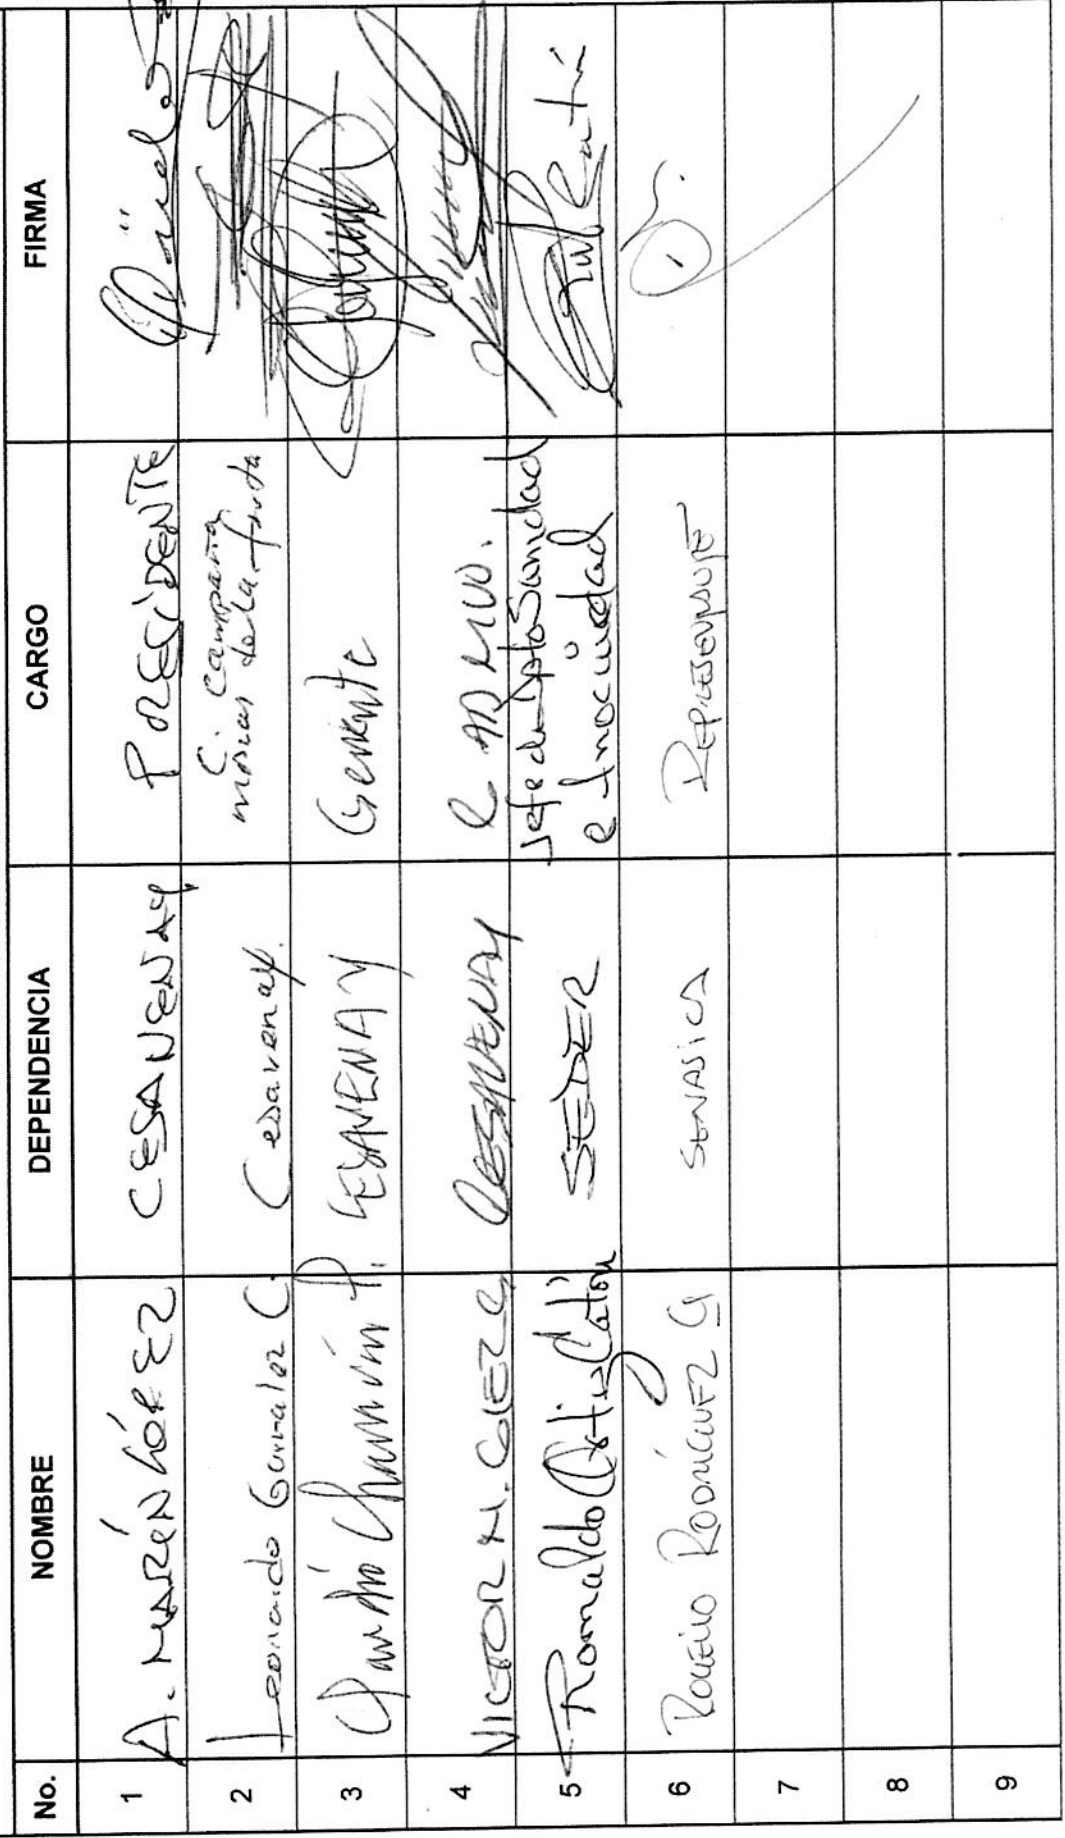 No. NOMBRE DEPENDENCIA CARGO FIRMA
1 A. MARÍN LÓPEZ CESAVENAY PRESIDENTE
2 Leonardo González C. Cesavenay. C. Campaña
moscas de la fruta
3 Chumín P. CESAVENAY Gerente
4 VICTOR M. GLEZ G. CESAVENAY C ADMVO.
5 Romaldo Ortiz Catón SEDER Jefe de Dpto Sanidad
e Inocuidad
6 ROGELIO RODRÍGUEZ G SENASICA REPRESENTANTE
7
8
9